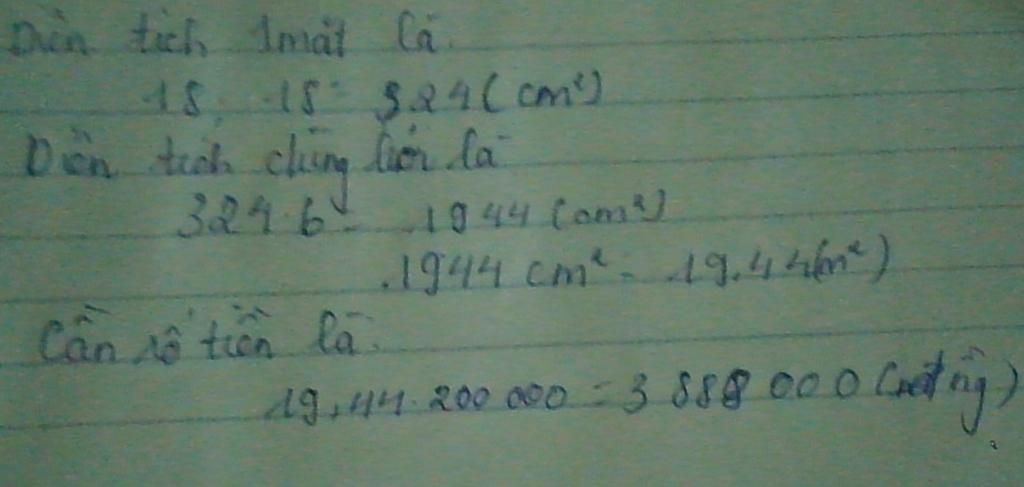 Diện tích 1 mặt là
18 . 18 = 324 (cm²)
Diện tích chung là
324 . 6 = 1944 (cm²)
1944 cm² = 19,44 (m²)
Cần số tiền là
19,44 . 200 000 = 3 888 000